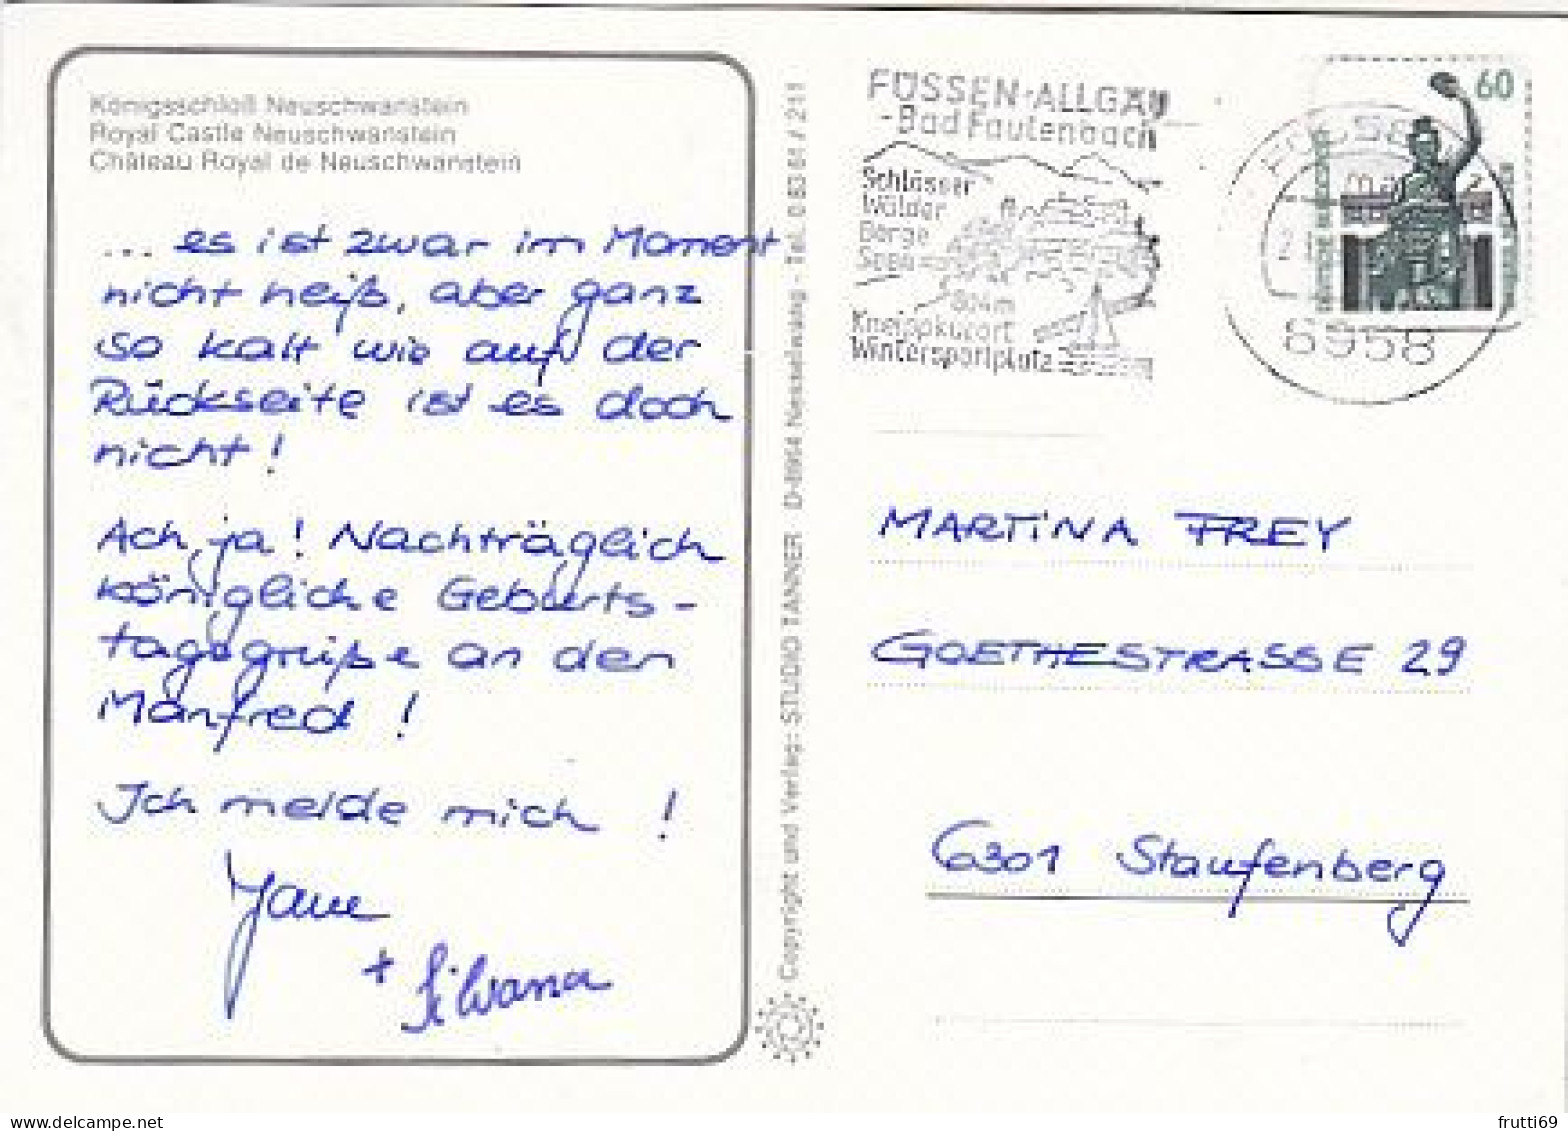 Königsschloß Neuschwanstein
Royal Castle Neuschwanstein
Château Royal de Neuschwanstein
... es ist zwar im Moment
nicht heiß, aber ganz
so kalt wie auf der
Rückseite ist es doch
nicht!
Ach ja! Nachträglich
königliche Geburts-
tagsgrüße an den
Manfred!
Ich melde mich!
+ Silvana
Copyright und Verlag: STUDIO TANNER D-8964 Nesselwang - Tel. 0 83 61 / 211
FÜSSEN-ALLGÄU
-Bad Faulenbach
Schlösser
Wälder
Berge
Seen
804m
Kneippkurort
Wintersportplatz
60
DEUTSCHE BUNDESPOST
8958
MARTINA FREY
GOETHESTRASSE 29
6301 Staufenberg
www.delcampe.net
frutti69